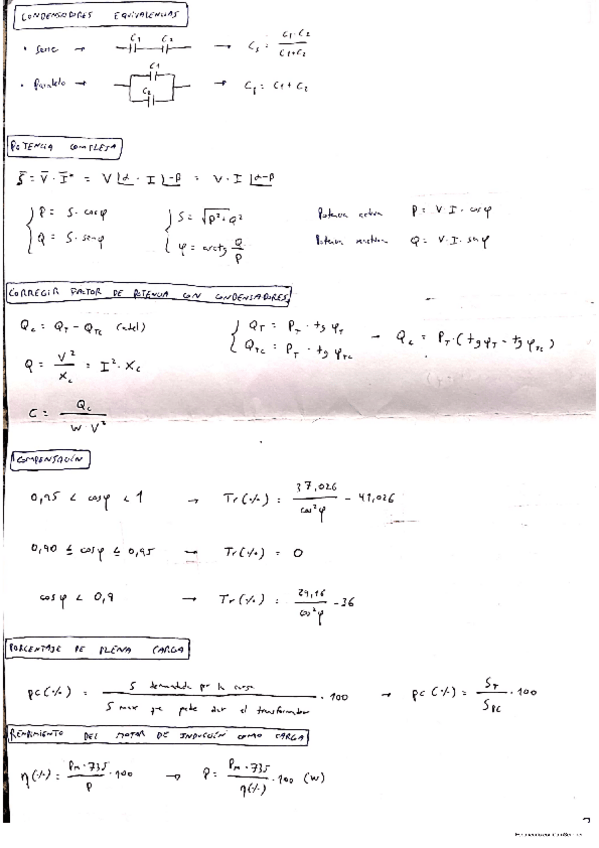 CONDENSADORES EQUIVALENCIAS
• Serie → C1 C2 → Cs = C1·C2 / C1+C2
• Paralelo → C1 C2 → Cp = C1+C2
POTENCIA COMPLEJA
S̄ = V̄ · Ī* = V∠α · I∠-β = V · I ∠α-β
P = S · cosφ
Q = S · senφ
S = √P²+Q²
φ = arctg Q/P
Potencia activa P = V · I · cosφ
Potencia reactiva Q = V · I · senφ
CORREGIR FACTOR DE POTENCIA CON CONDENSADORES
Qc = QT - QTC
QT = PT · tg φT
QTC = PT · tg φTC
→ Qc = PT · (tg φT - tg φTC)
Q = V²/Xc = I² · Xc
C = Qc / W · V²
COMPENSACIÓN
0,95 < cosφ < 1 → Tr(%) = 37,026 / cos²φ - 41,026
0,90 ≤ cosφ ≤ 0,95 → Tr(%) = 0
cosφ < 0,9 → Tr(%) = 29,16 / cos²φ - 36
PORCENTAJE DE PLENA CARGA
PC(%) = S demandada por la carga / S max que puede dar el transformador · 100 → PC(%) = ST / SPC · 100
RENDIMIENTO DEL MOTOR DE INDUCCIÓN COMO CARGA
η(%) = Pm · 735 / P · 100 → P = Pm · 735 / η(%) · 100 (W)